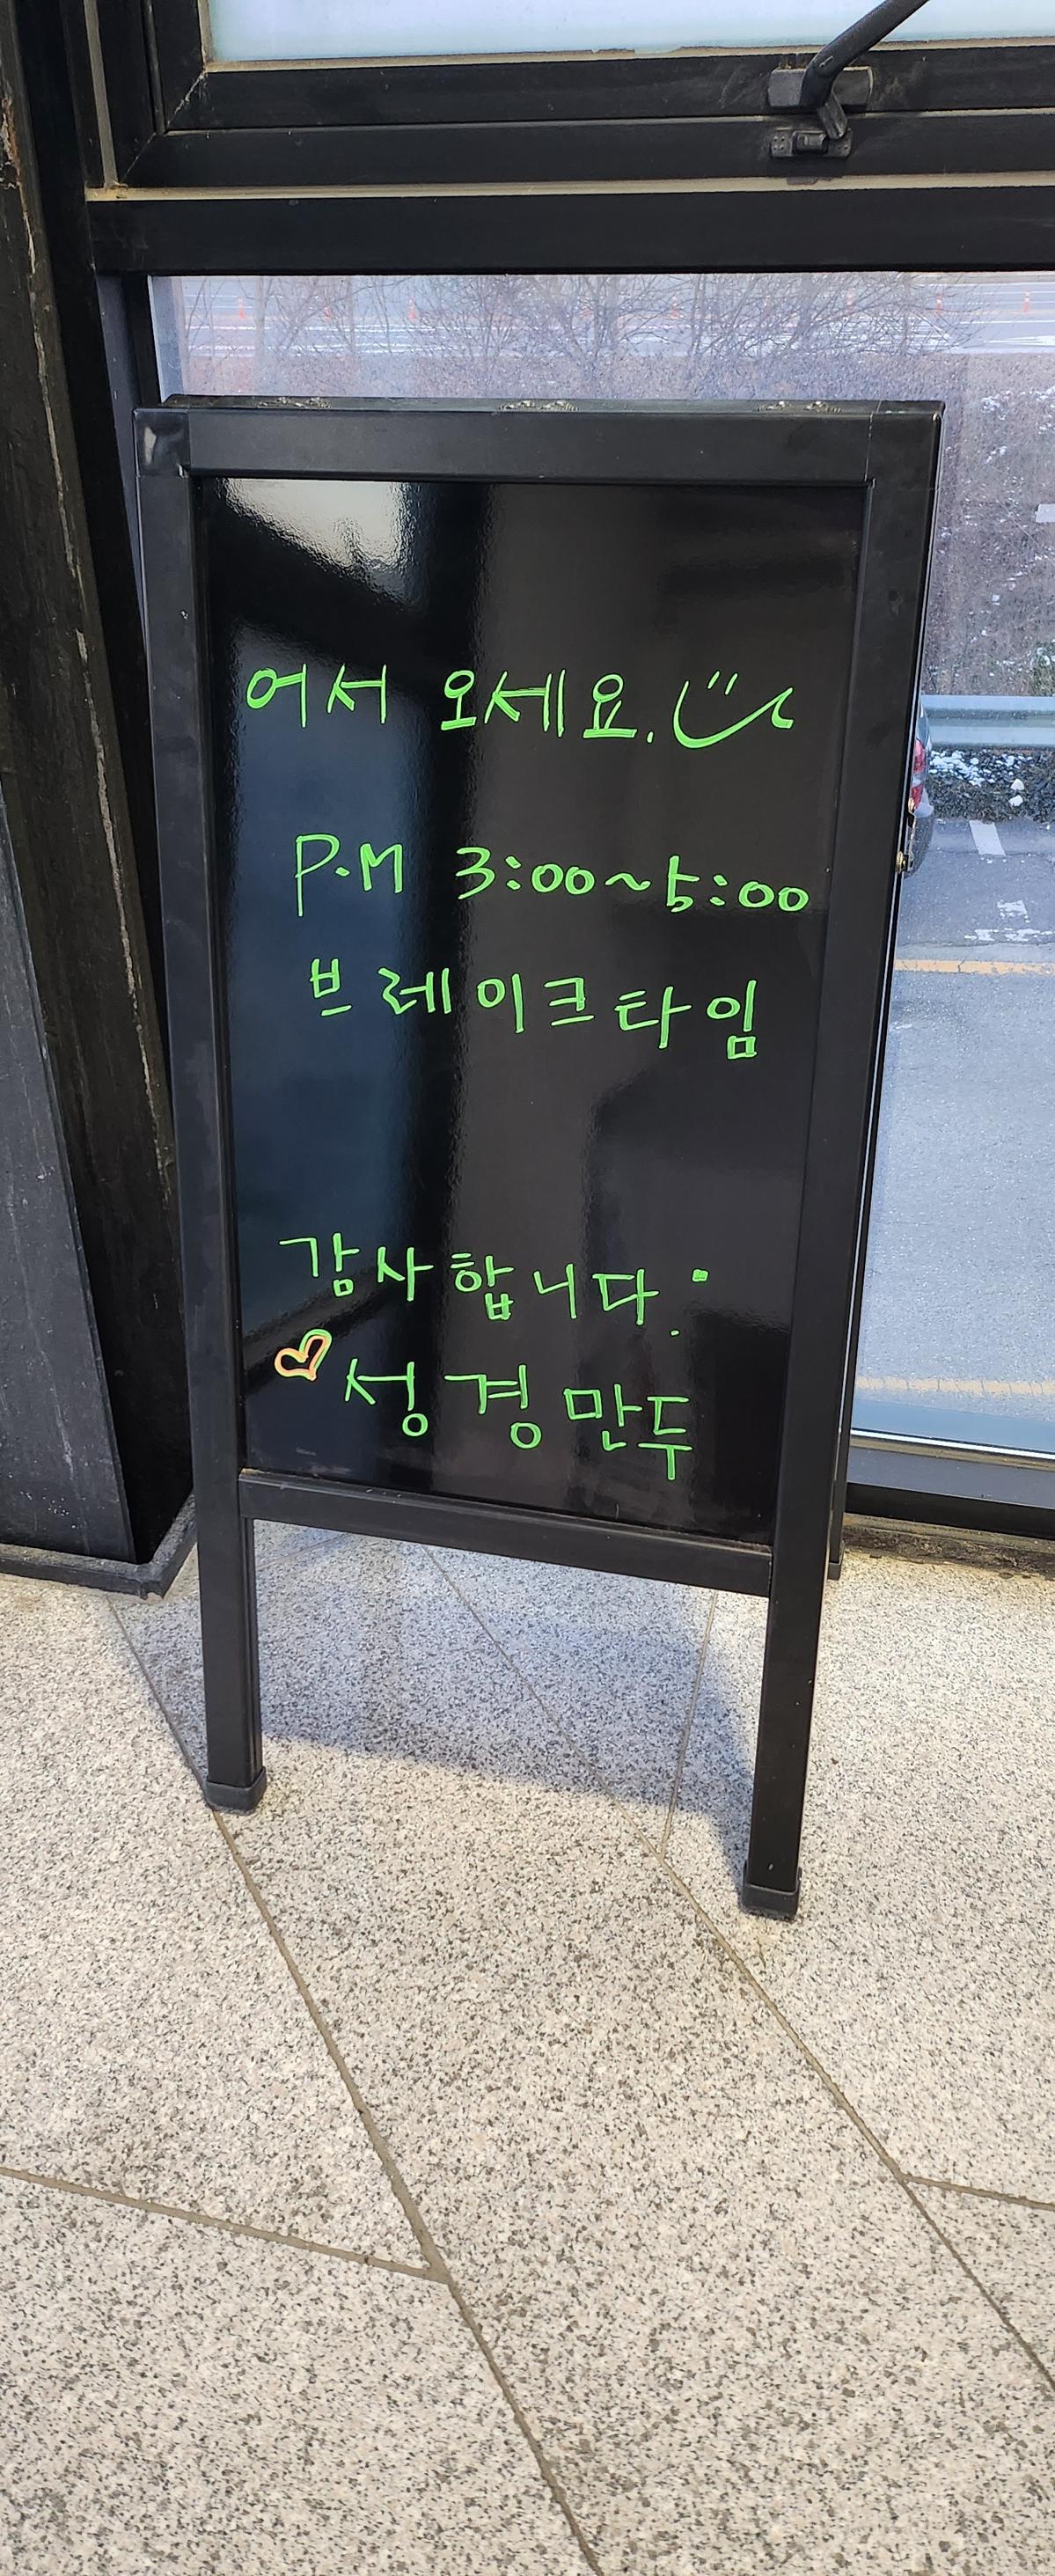 어서 오세요.
P.M 3:00~5:00
브레이크타임
감사합니다.
성경만두